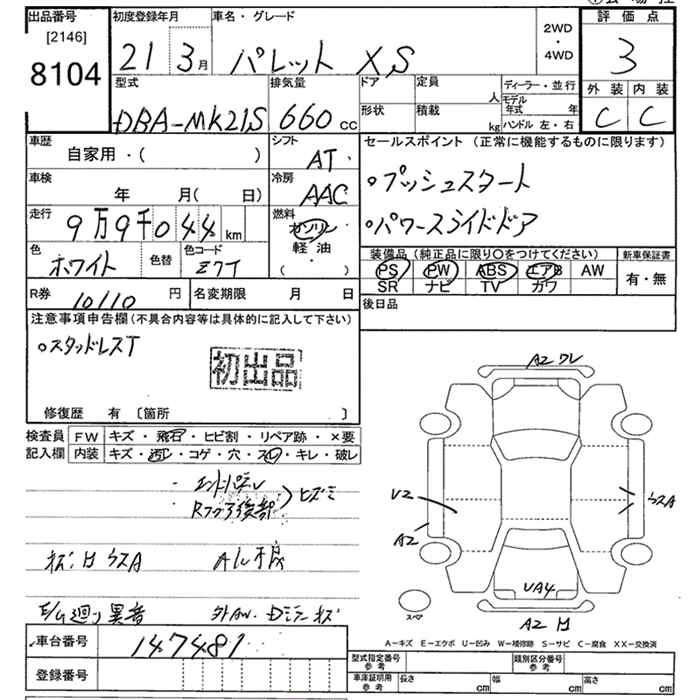 出品番号
[2146]
8104
初度登録年月
21 3月
車名・グレード
パレット XS
2WD
・
4WD
評価点
3
外装 内装
C C
型式
DBA-MK21S
排気量
660cc
ドア
形状
定員 人
積載 kg
ディーラー・並行
モデル年式 年
ハンドル 左・右
車歴
自家用・( )
シフト
AT
車検
年 月( 日)
冷房
AAC
走行
9万9千044km
燃料
ガソリン
軽油
( )
色
ホワイト
色替
色コード
Z7T
セールスポイント (正常に機能するものに限ります)
○プッシュスタート
○パワースライドドア
装備品 (純正品に限り○をつけてください)
PS PW ABS エアB AW
SR ナビ TV カワ
新車保証書
有・無
R券
10110円
名変期限 月 日
後日品
注意事項申告欄(不具合内容等は具体的に記入して下さい)
○スタッドレスT
初出品
修復歴 有 [箇所 ]
検査員記入欄
FW キズ・飛石・ヒビ割・リペア跡・×要
内装 キズ・汚レ・コゲ・穴・スレ・キレ・破レ
ヒズミ
A2 ワレ
U2
A2
UA4
スペア
E/G廻り異音
車台番号
147481
登録番号
A-キズ E-エクボ U-凹み W-補修跡 S-サビ C-腐食 XX-交換済
型式指定番号
参考
類別区分番号
参考
車庫証明用
参考
長さ cm
幅 cm
高さ cm